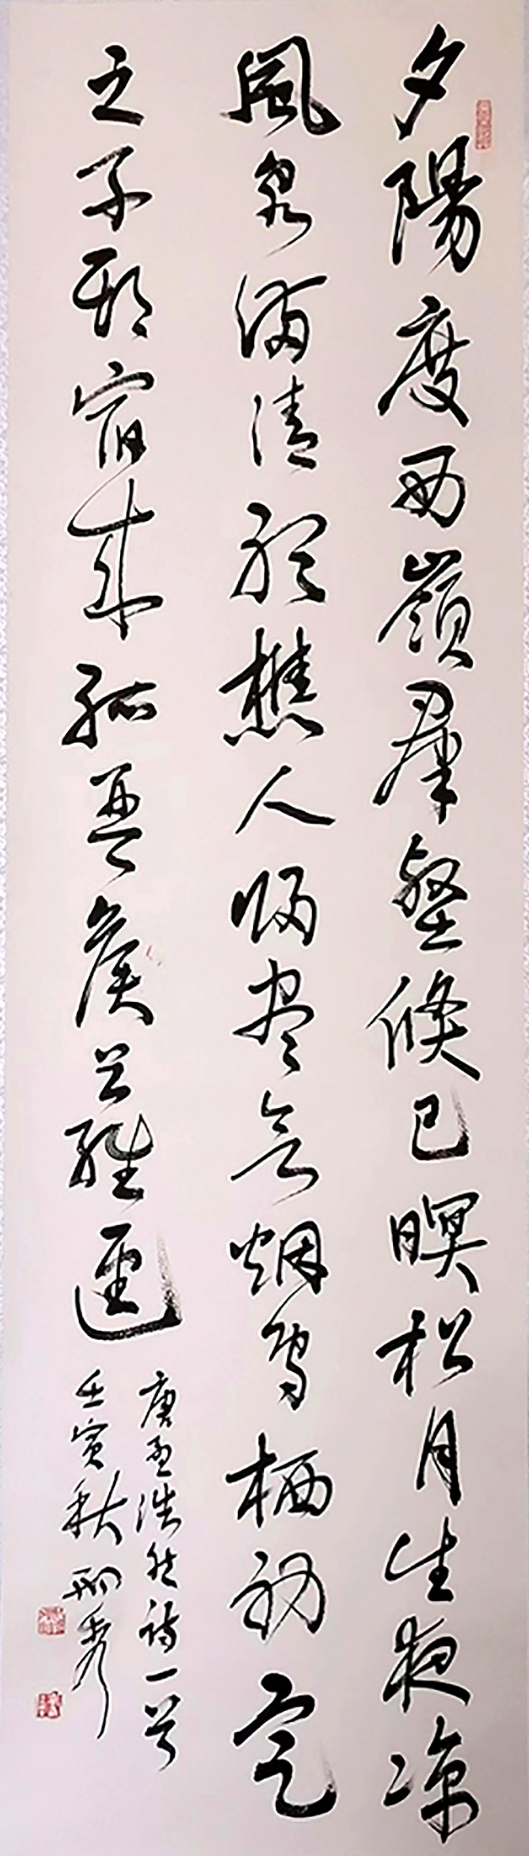 夕陽度西嶺群壑倏已暝松月生夜凉
風泉滿清聽樵人歸盡欲烟鳥栖初定
之子期宿來孤琴候蘿逕
唐孟浩然詩一首
壬寅秋